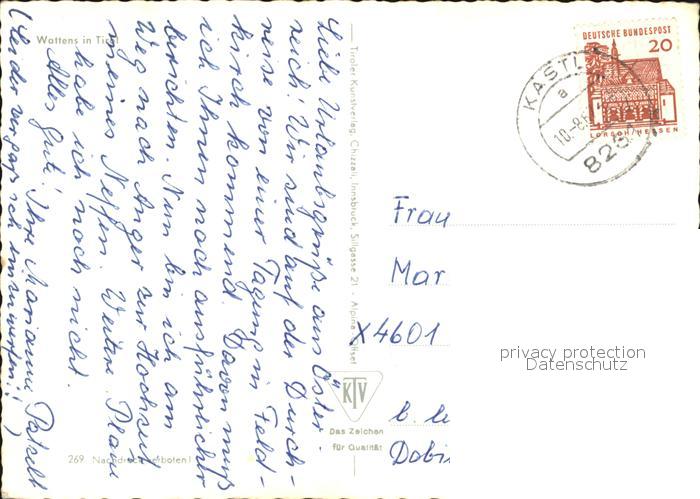 Wattens in Tirol
Liebe Urlaubsgrüße aus Öster-
reich! Wir sind auf der Durch-
reise von einer Tagung in Feld-
kirch kommend. Davon muß
ich Ihnen noch ausführlicher
berichten. Nun bin ich am
Weg nach Anger zur Hochzeit
meines Neffen. Weitere Pläne
habe ich noch nicht.
Alles Gute! Ihre Marianne
(Leider vergaß ich einzuwerfen!)
269 Nachdruck verboten!
Tiroler Kunstverlag Chizzali, Innsbruck, Sillgasse 21 - Alpine-Offset
KTV
Das Zeichen
für Qualität
DEUTSCHE BUNDESPOST
20
LORSCH/HESSEN
KASTL
a
10.-8.6
825
Frau
Mar
X4601
privacy protection
Datenschutz
Dobi